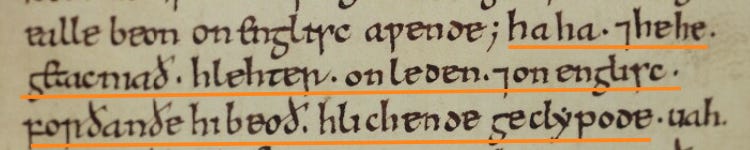 ealle beon on englisc aƿende; ha ha. ⁊ hehe.
getacniað. hlehter. on leden. ⁊ on englisc.
forðanðe hi beoð. hlichende geclypode. uah.